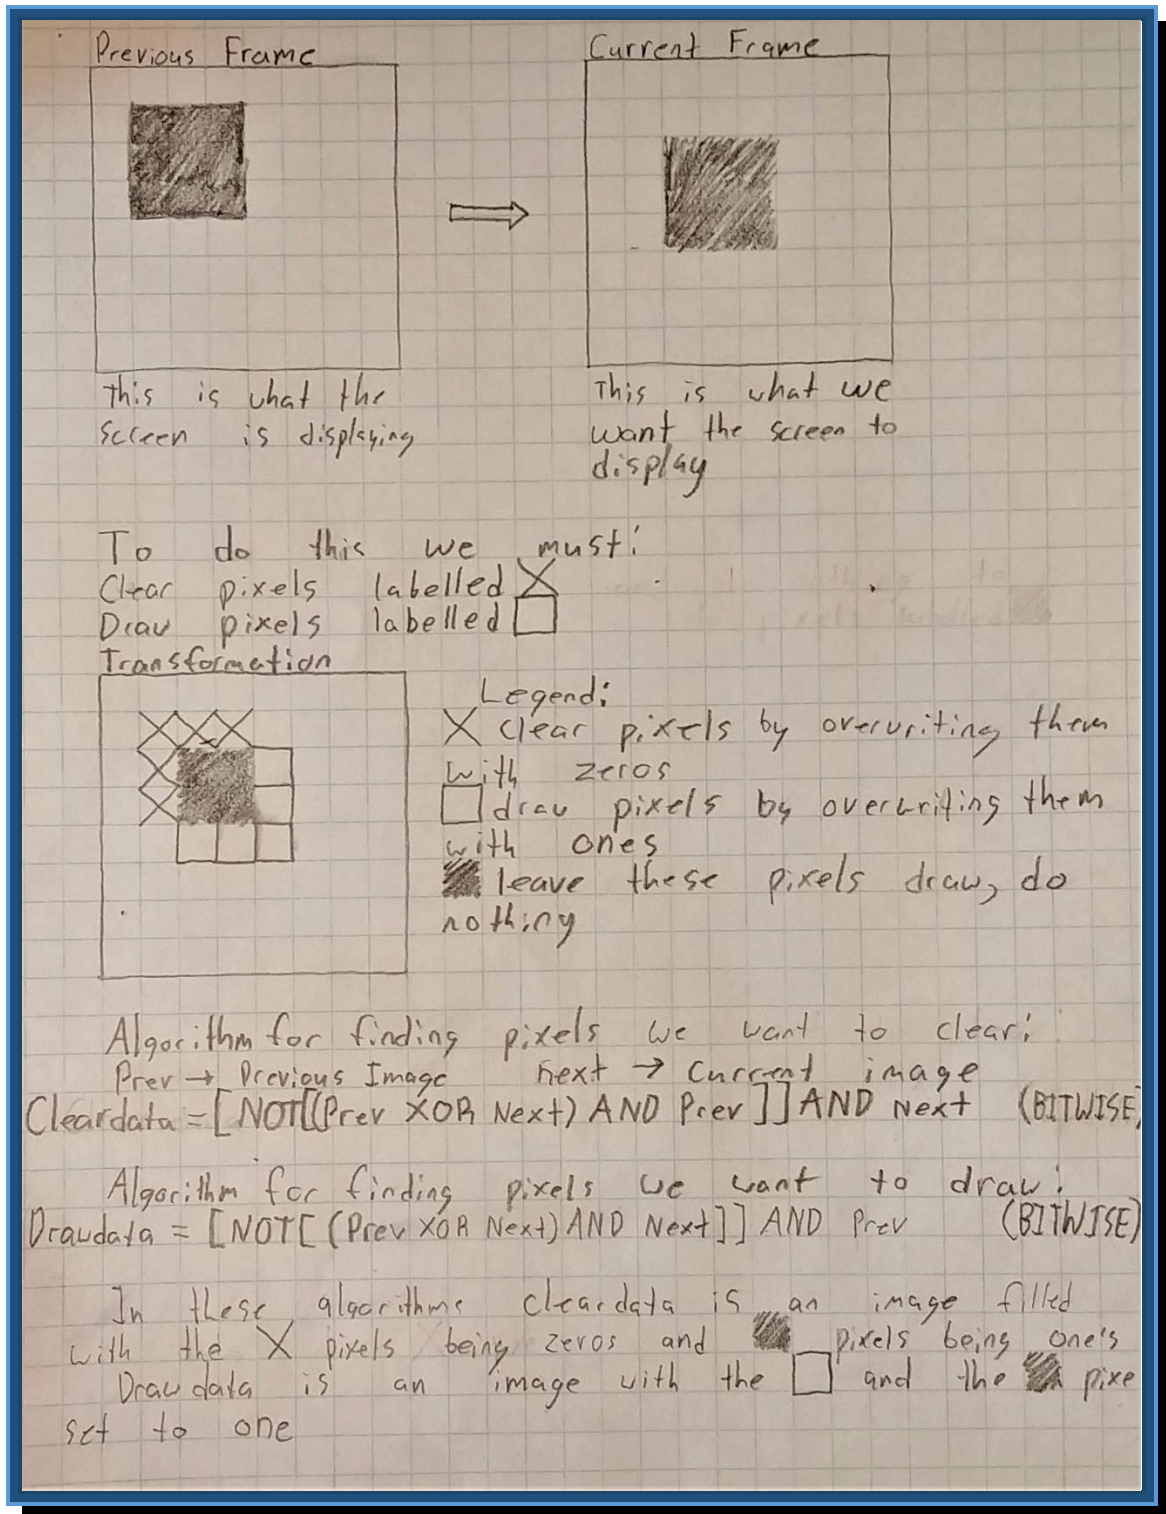 Previous Frame
Current Frame
This is what the
screen is displaying
This is what we
want the screen to
display
To do this we must:
Clear pixels labelled
Draw pixels labelled
Transformation
Legend:
clear pixels by overwriting them
with zeros
draw pixels by overwriting them
with ones
leave these pixels draw, do
nothing
Algorithm for finding pixels we want to clear:
Prev → Previous Image Next → Current image
Cleardata = [NOT[(Prev XOR Next) AND Prev]] AND Next (BITWISE)
Algorithm for finding pixels we want to draw:
Drawdata = [NOT[(Prev XOR Next) AND Next]] AND Prev (BITWISE)
In these algorithms cleardata is an image filled
with the X pixels being zeros and pixels being one's
Drawdata is an image with the and the pixe
set to one